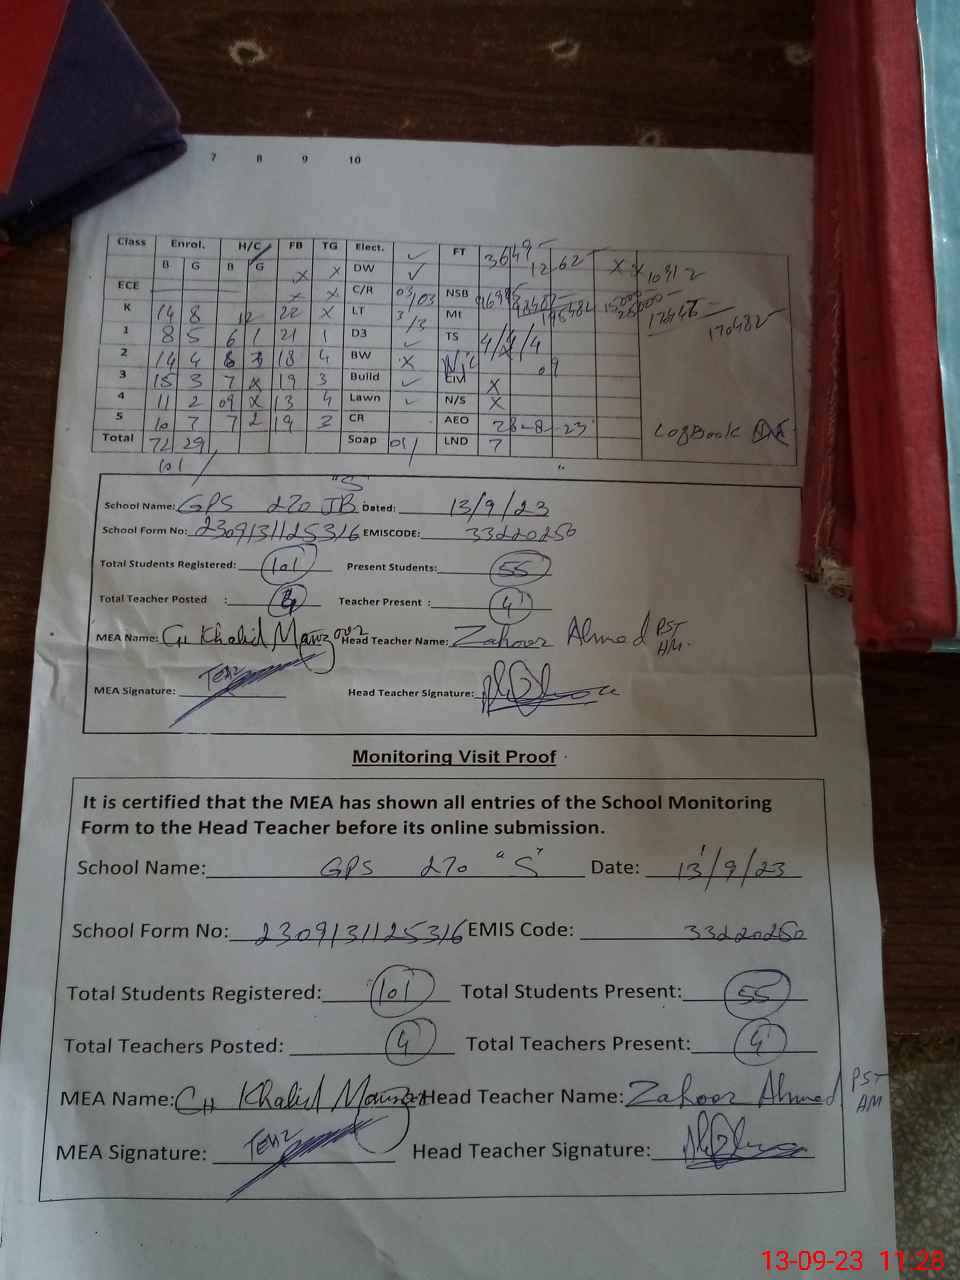 7 8 9 10
Class Enrol. H/C FB TG Elect. ✓ FT 3649 1262
B G B G x x DW ✓ x x 10312
ECE x x C/R 03/03 NSB
K 14 8 12 22 x LT 3/3 Mt
1 8 5 6 1 21 1 D3 ✓ TS 4/4/4
2 14 4 18 4 BW x
3 15 3 7 x 19 3 Build ✓ x
4 11 2 09 x 13 4 Lawn ✓ N/S x
5 10 7 7 2 19 3 CR AEO 28-8-23
Total 72 29 Soap 01/ LND 7 LogBook
101/
School Name: GPS 270 JB "S" Dated: 13/9/23
School Form No: 2309131125316 EMISCODE: 33220250
Total Students Registered: 101 Present Students: 55
Total Teacher Posted : 4 Teacher Present : 4
MEA Name: CH Khalid Manzoor Head Teacher Name: Zahoor Ahmed PST HM.
MEA Signature: Head Teacher Signature:
Monitoring Visit Proof
It is certified that the MEA has shown all entries of the School Monitoring
Form to the Head Teacher before its online submission.
School Name: GPS 270 "S" Date: 13/9/23
School Form No: 2309131125316 EMIS Code: 33220250
Total Students Registered: 101 Total Students Present: 55
Total Teachers Posted: 4 Total Teachers Present: 4
MEA Name: CH Khalid Manzoor Head Teacher Name: Zahoor Ahmed PST HM
MEA Signature: Head Teacher Signature:
13-09-23 11:28